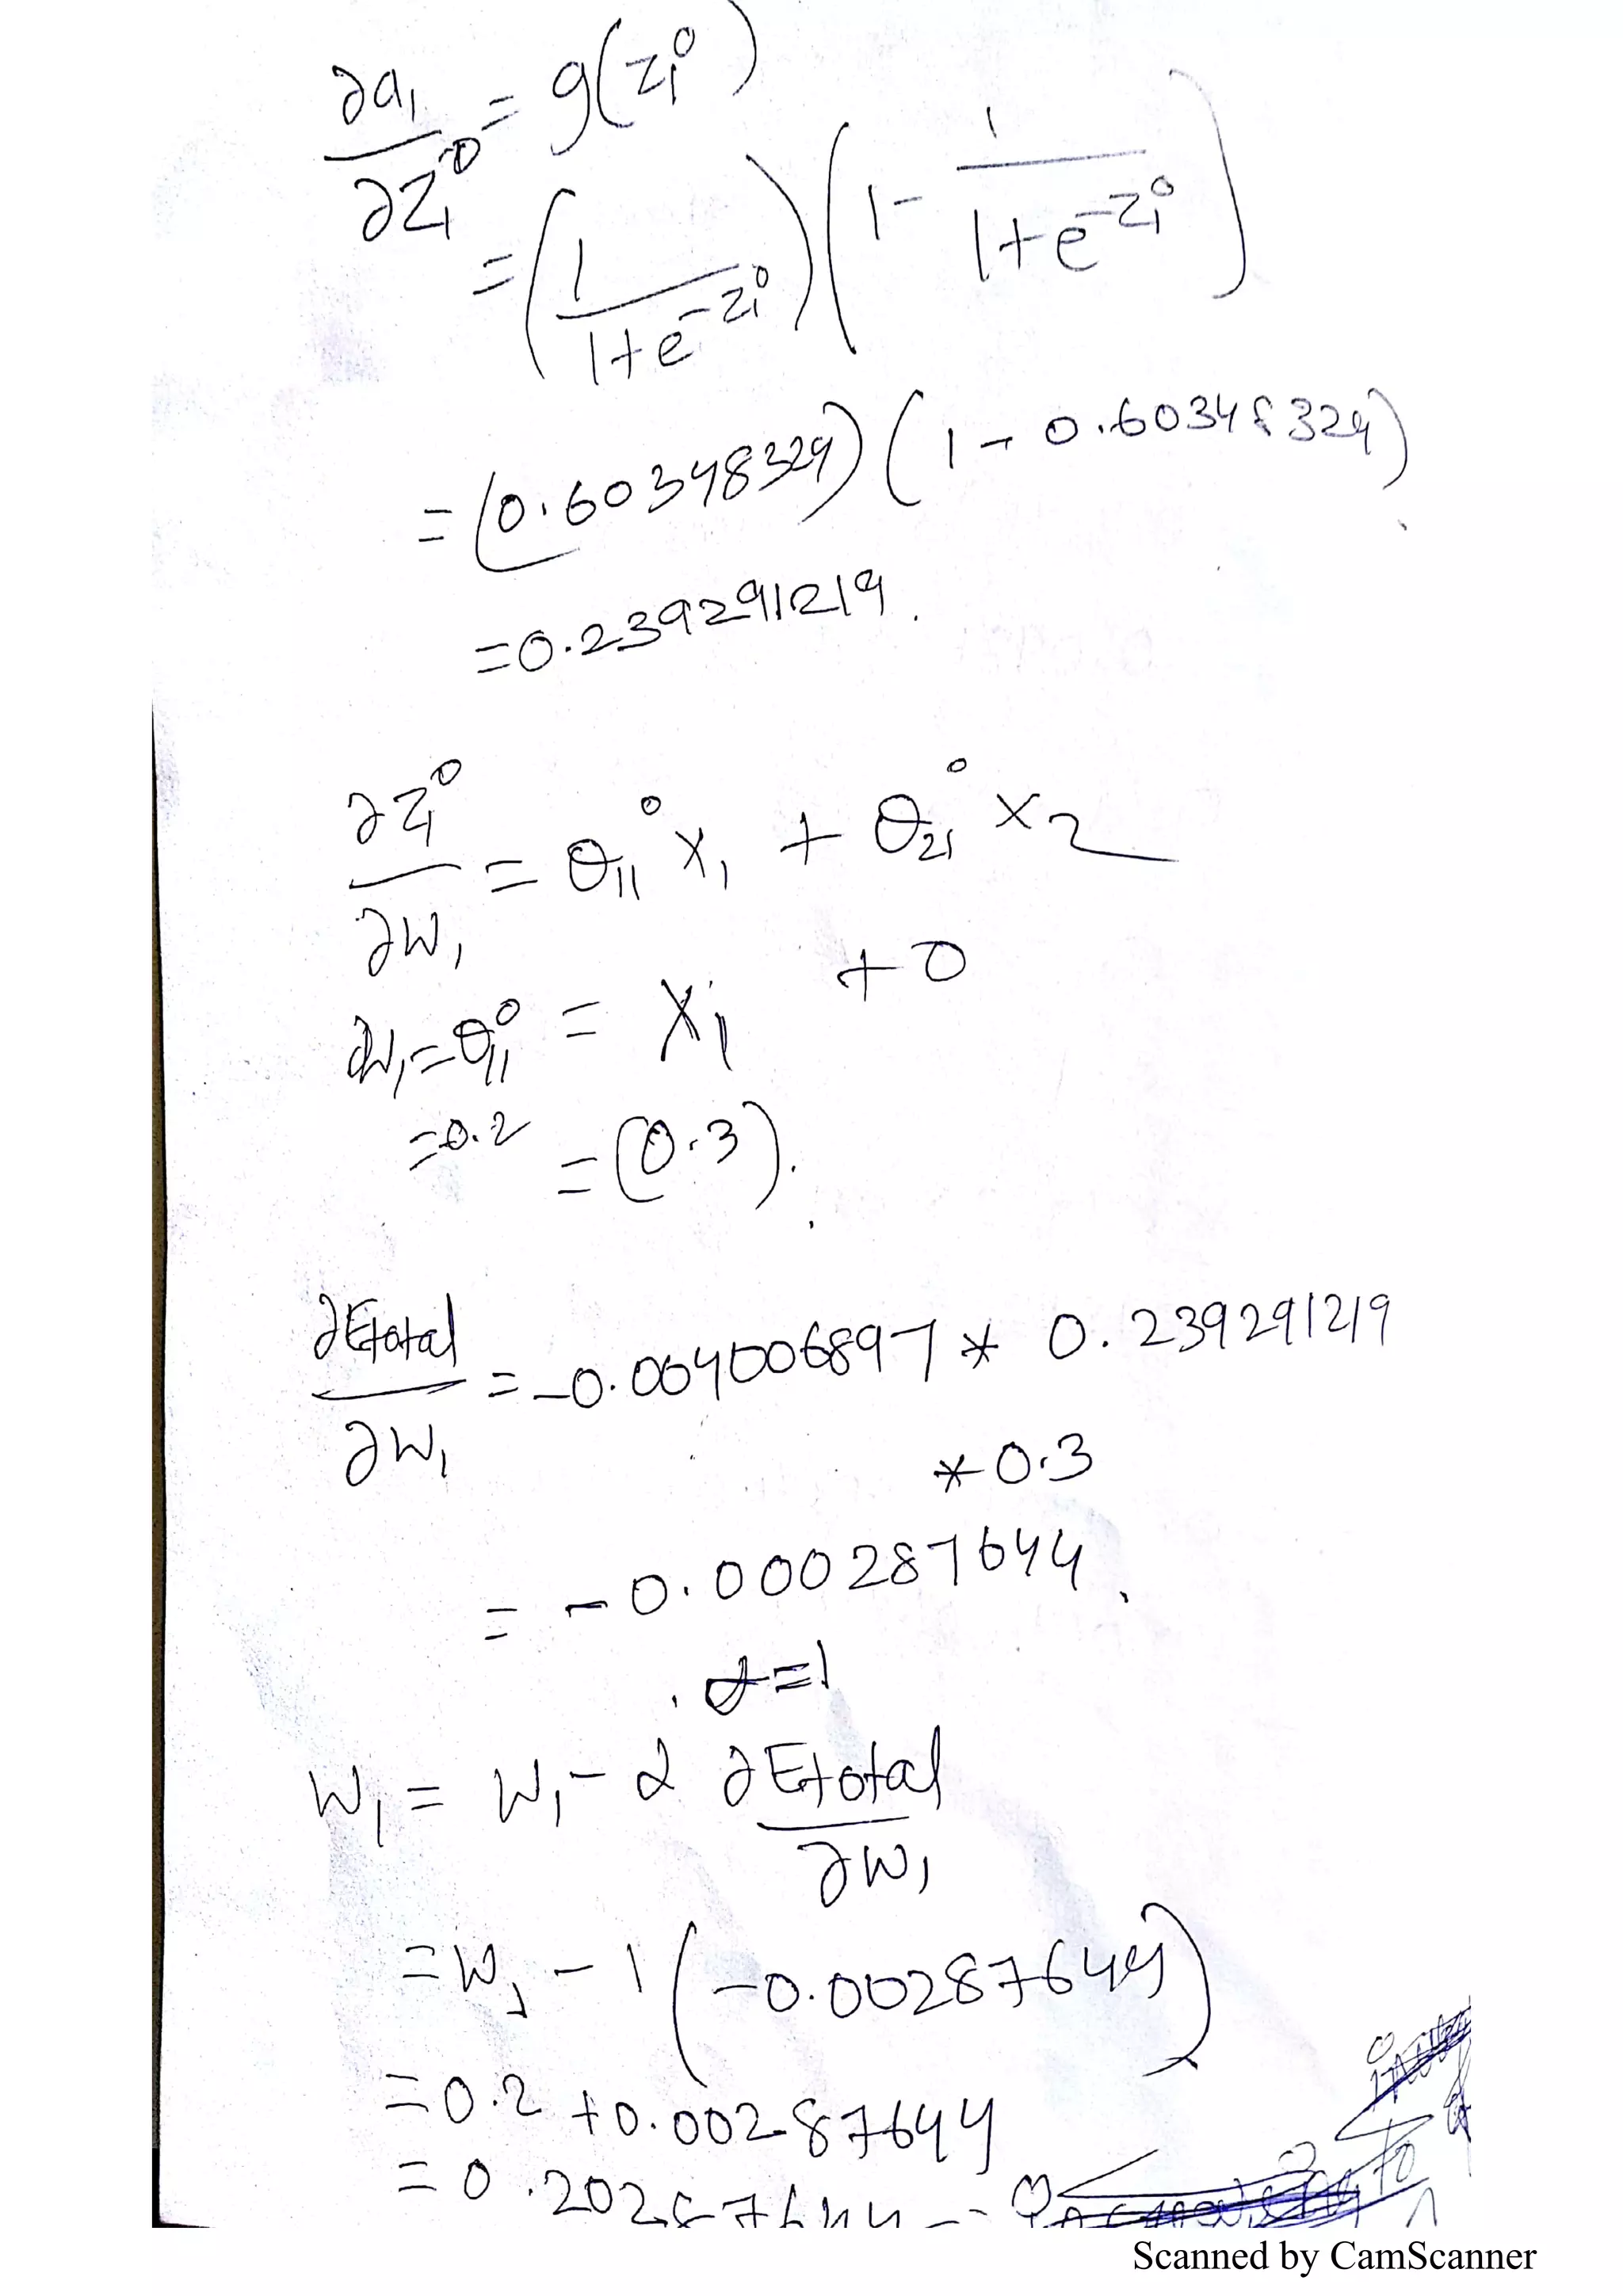 ∂a₁/∂Z₁⁰ = g(z₁⁰)
= (1/(1+e^-z₁⁰)) (1 - 1/(1+e^-z₁⁰))
= (0.60348329) (1 - 0.60348329)
= 0.239291219.
∂Z₁⁰/∂W₁ = θ₁₁⁰ x₁ + θ₂₁⁰ x₂
+ 0
∂W₁ = θ₁₁⁰ = X₁
= 0.2 = (0.3).
∂Etotal/∂W₁ = -0.004006897 * 0.239291219
* 0.3
= -0.000287644.
α=1
W₁ = W₁ - α ∂Etotal/∂W₁
= W₁ - 1 (-0.00287644)
= 0.2 + 0.00287644
= 0.20287644
Scanned by CamScanner